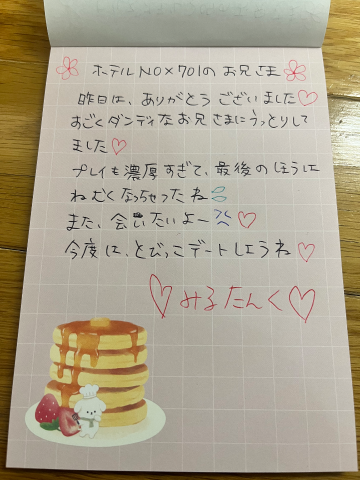 ホテルNOX701のお兄さま
昨日は、ありがとうございました♡
すごくダンディなお兄さまにうっとりして
ました♡
プレイも濃厚すぎて、最後のほうは
ねむくなっちゃったね
また、会いたいよー♡
今度は、とびっこデートしようね♡
♡みるたんく♡